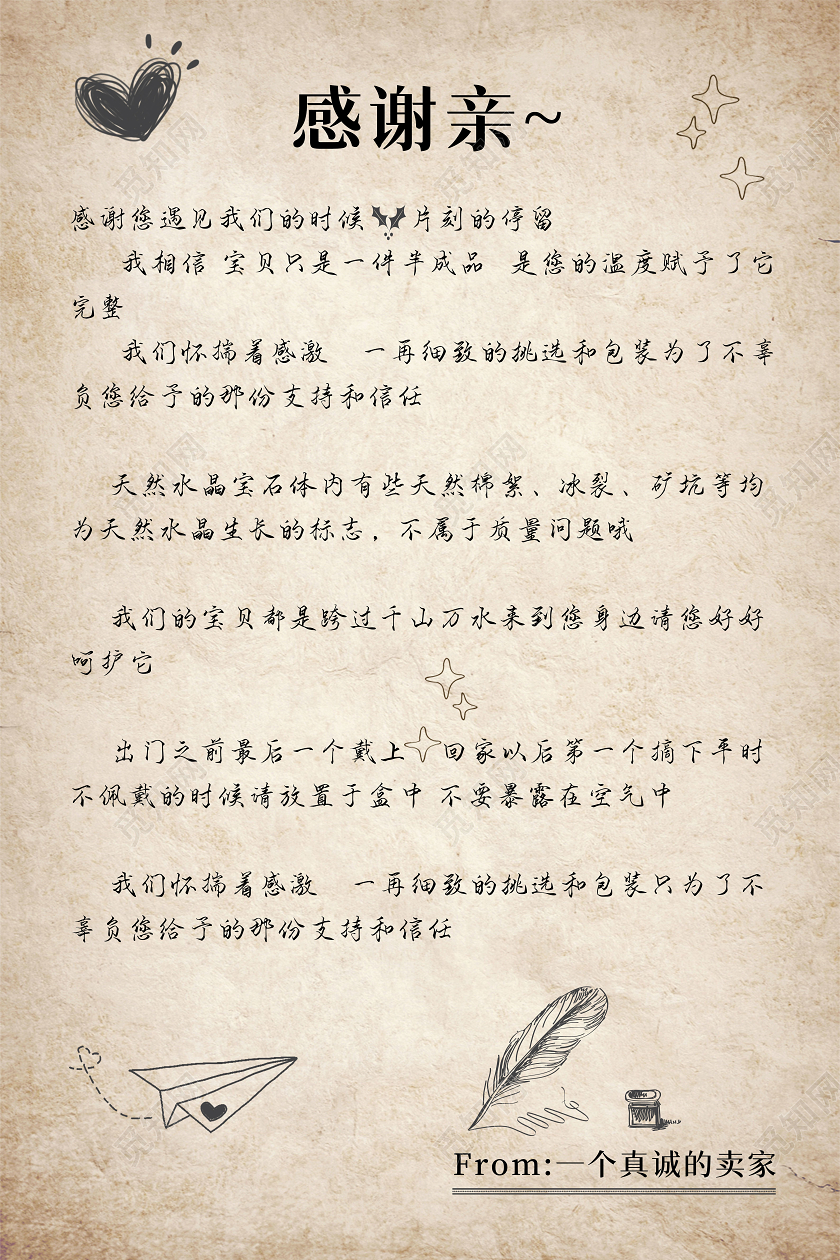 感谢亲~
感谢您遇见我们的时候 片刻的停留
我相信 宝贝只是一件半成品 是您的温度赋予了它
完整
我们怀揣着感激 一再细致的挑选和包装为了不辜
负您给予的那份支持和信任
天然水晶宝石体内有些天然棉絮、冰裂、矿坑等均
为天然水晶生长的标志，不属于质量问题哦
我们的宝贝都是跨过千山万水来到您身边请您好好
呵护它
出门之前最后一个戴上 回家以后第一个摘下平时
不佩戴的时候请放置于盒中 不要暴露在空气中
我们怀揣着感激 一再细致的挑选和包装只为了不
辜负您给予的那份支持和信任
From:一个真诚的卖家
觅知网